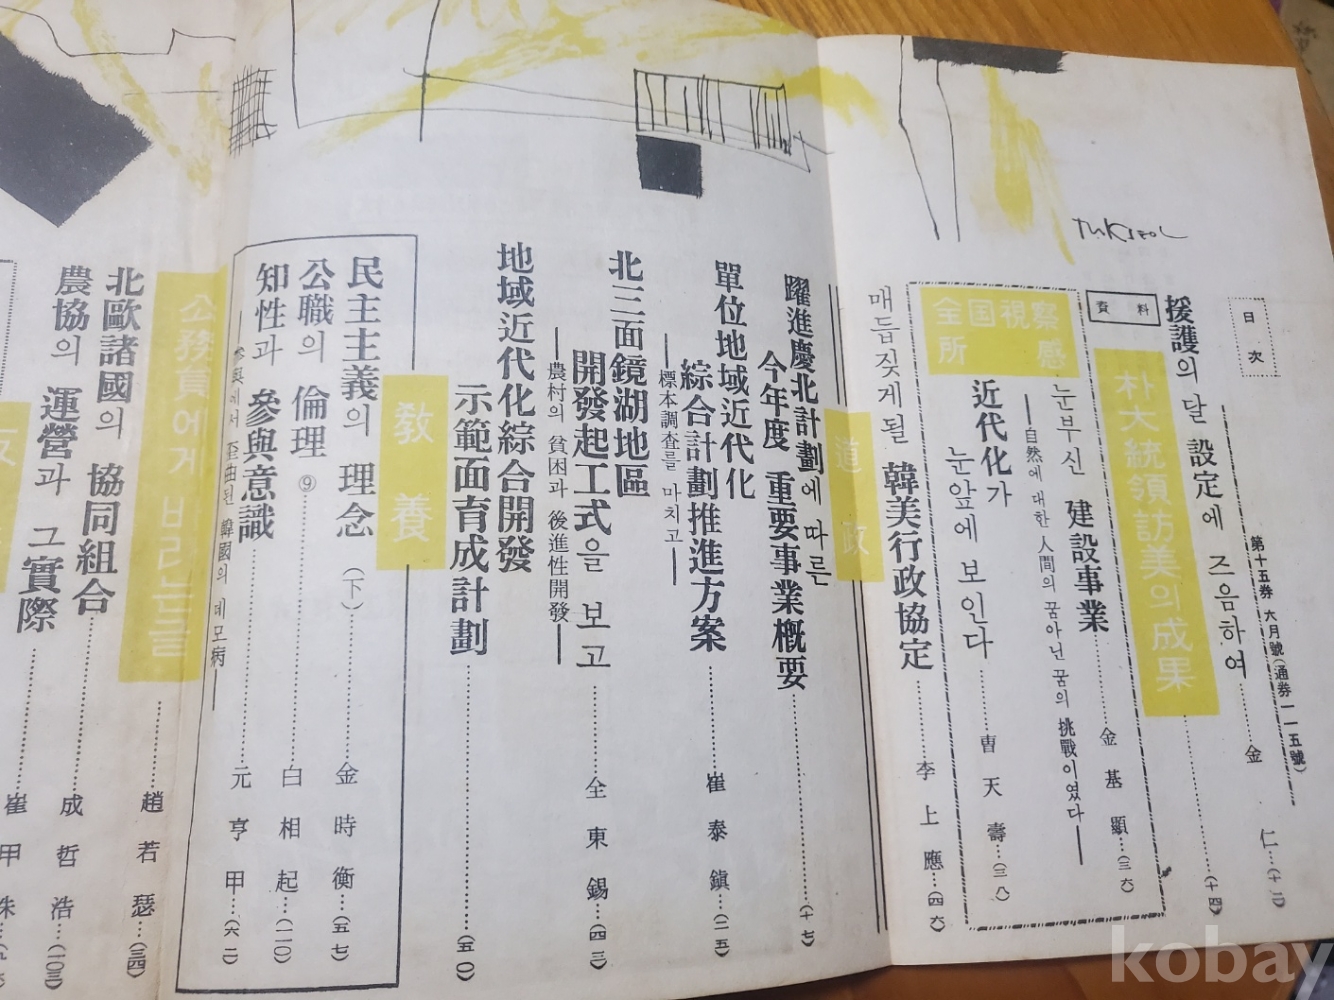 日次
第十五券 六月號(通券一一五號)
援護의 달 設定에 즈음하여……金 仁…(十二)
資料
朴大統領訪美의 成果……(十四)
全国視察
所感
눈부신 建設事業……金基顯…(三六)
―自然에 대한 人間의 꿈아닌 꿈의 挑戰이였다―
近代化가
눈앞에 보인다……曺天壽…(三八)
매듭짖게될 韓美行政協定……李上應…(四六)
道政
躍進慶北計劃에 따른
今年度 重要事業概要……(十七)
單位地域近代化
綜合計劃推進方案……崔泰鎭…(二五)
―標本調査를 마치고―
北三面鏡湖地區
開發起工式을 보고……全東錫…(四二)
―農村의 貧困과 後進性開發―
地域近代化綜合開發
示範面育成計劃……(五〇)
敎養
民主主義의 理念(下)……金時衡…(五七)
公職의 倫理⑨……白相起…(一一〇)
知性과 參與意識……元亨甲…(六二)
―參與에서 歪曲된 韓國의 데모病―
公務員에게 바라는 글……趙若瑟…(三四)
北歐諸國의 協同組合……成哲浩…(一〇三)
農協의 運營과 그 實際……崔甲洙
TUKSEOL
kobay